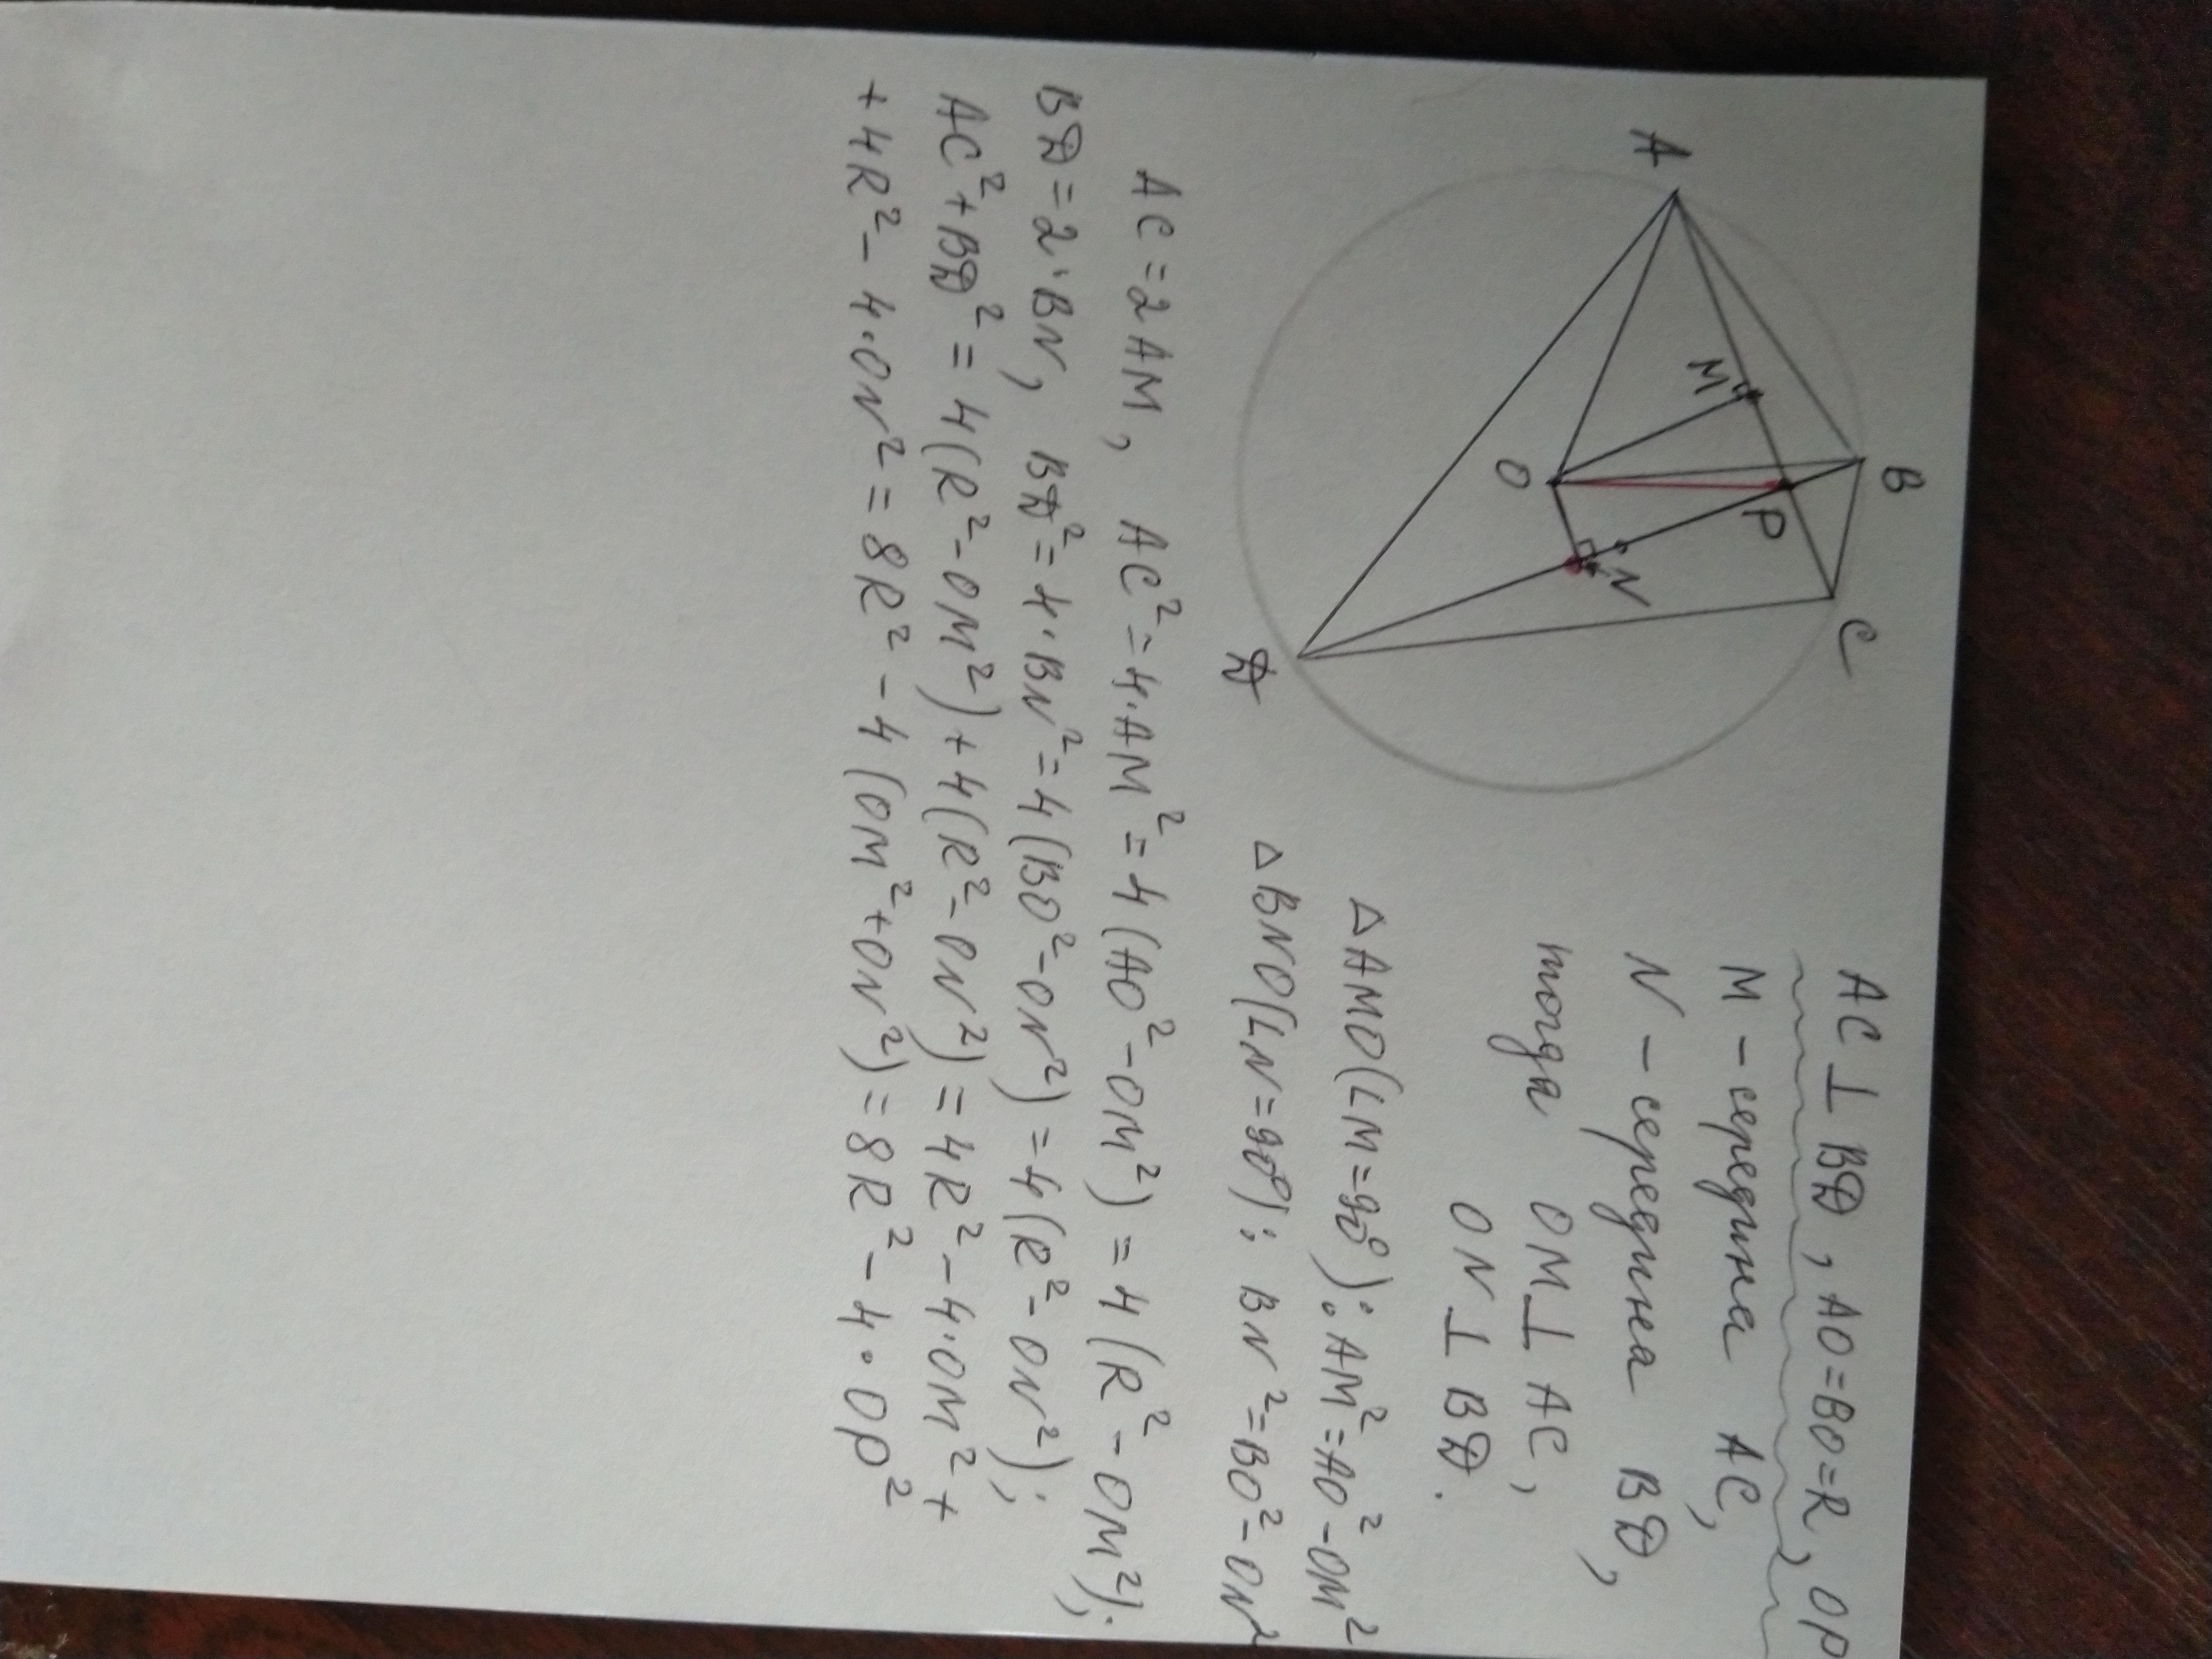 A
B
C
D
M
P
O
N
AC ⊥ BD, AO=BO=R, OP
M – середина AC,
N – середина BD,
тогда OM ⊥ AC,
ON ⊥ BD.
△AMO(∠M=90°): AM²=AO²-OM²
△BNO(∠N=90°): BN²=BO²-ON²
AC=2AM, AC²=4·AM²=4(AO²-OM²)=4(R²-OM²);
BD=2·BN, BD²=4·BN²=4(BO²-ON²)=4(R²-ON²);
AC²+BD²=4(R²-OM²)+4(R²-ON²)=4R²-4·OM²+
+4R²-4·ON²=8R²-4(OM²+ON²)=8R²-4·OP²